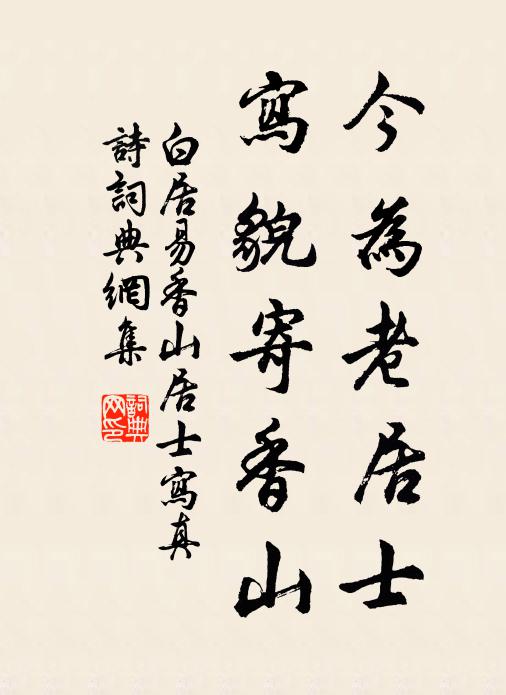 今為老居士
寫貌寄香山
白居易香山居士寫真
詩詞典網集
詞典
网印